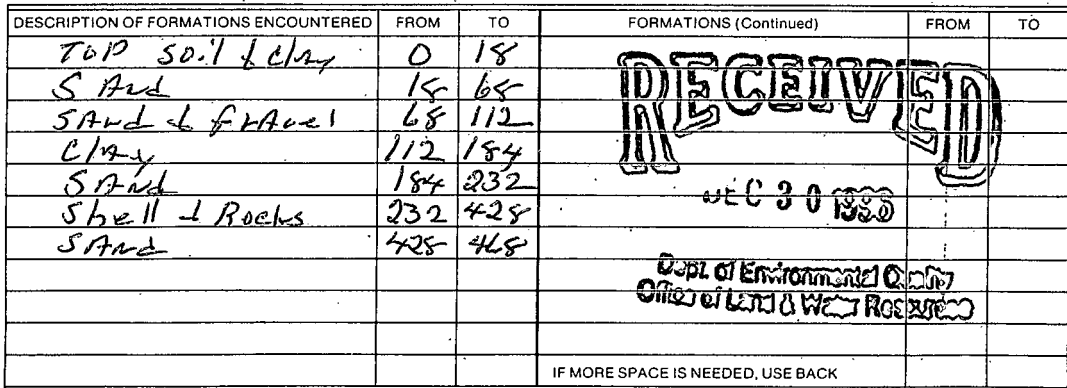 DESCRIPTION OF FORMATIONS ENCOUNTERED FROM TO FORMATIONS (Continued) FROM TO
TOP SOil & Clay 0 18
SAnd 18 68
SAnd & grAvel 68 112
Clay 112 184
SAnd 184 232
Shell & Rocks 232 428
SAnd 428 468
RECEIVED
DEC 30
Dept. of Environmental Quality
Office of Land & Water Resources
IF MORE SPACE IS NEEDED, USE BACK